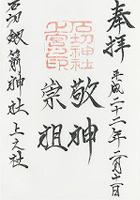 奉拝
平成二十二年
石切神社
上宮之印
敬神
崇祖
石切劔箭神社上之社